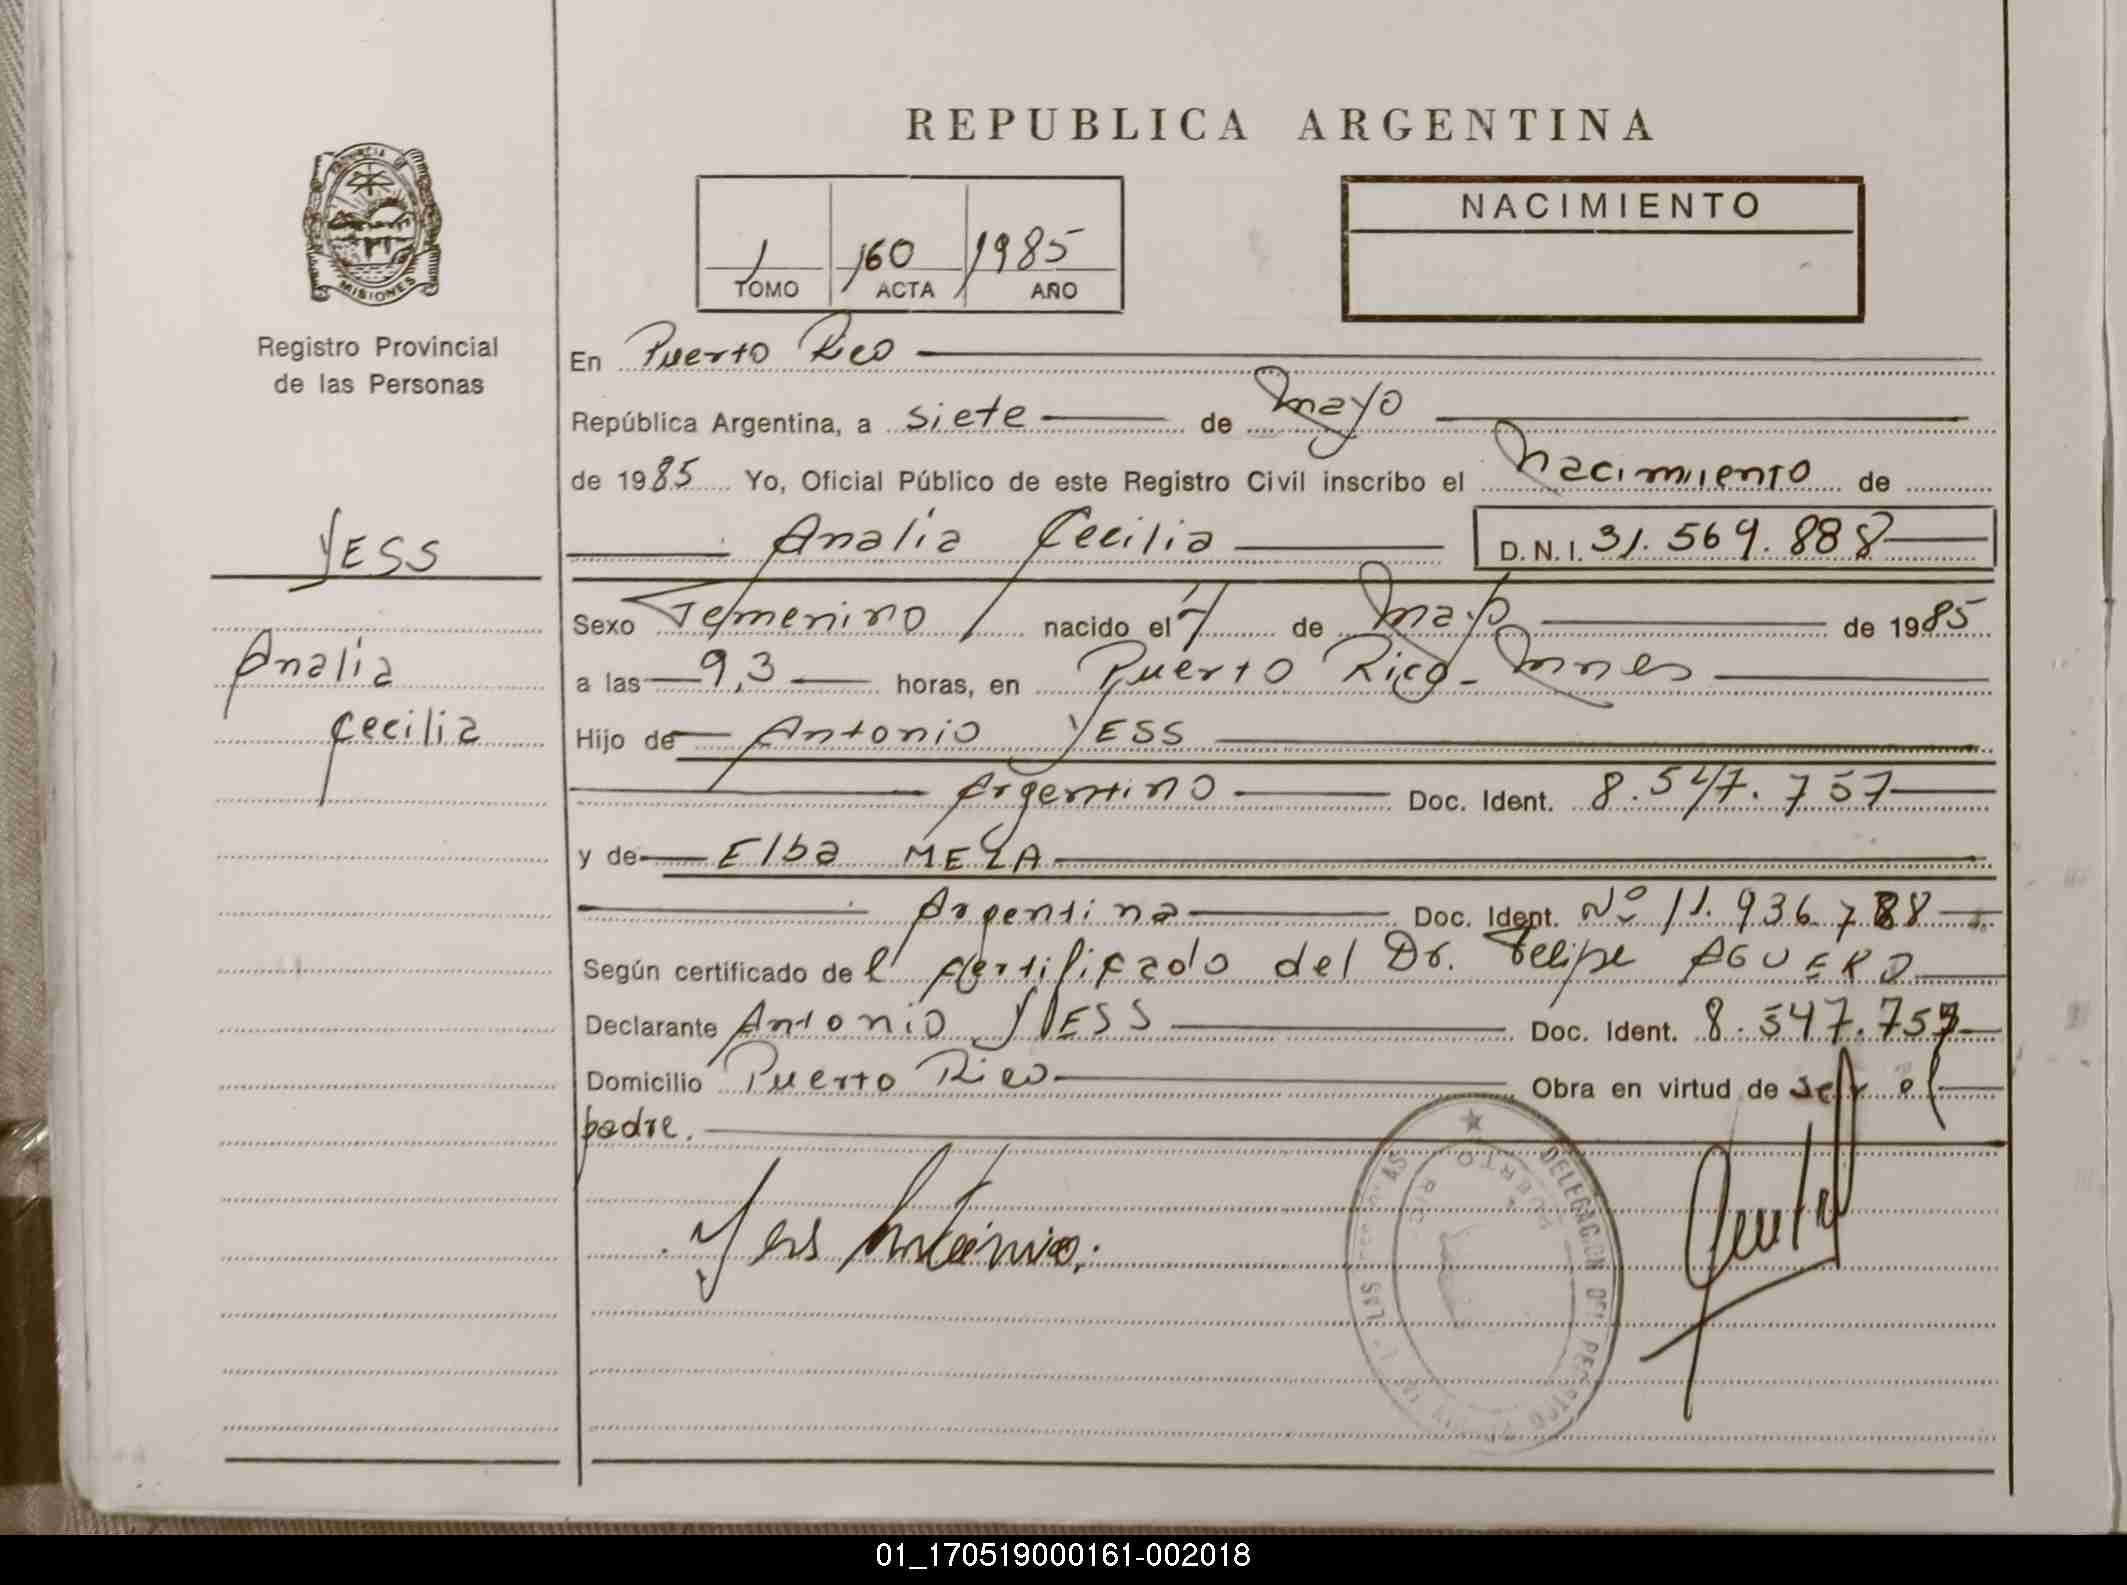 REPUBLICA ARGENTINA
PROVINCIA DE
MISIONES
Registro Provincial
de las Personas
YESS
Analia
Cecilia
1 160 1985
TOMO ACTA AÑO
NACIMIENTO
En Puerto Rico
República Argentina, a siete de mayo
de 1985 Yo, Oficial Público de este Registro Civil inscribo el Nacimiento de
Analia Cecilia D.N.I. 31.569.888
Sexo Femenino nacido el 7 de Mayo de 1985
a las 9,3 horas, en Puerto Rico - Mnes
Hijo de Antonio YESS
Argentino Doc. Ident. 8.547.757
y de Elba MEZA
Argentina Doc. Ident. Nº 11.936.788
Según certificado de l certificado del Dr. Felipe AGUERO
Declarante Antonio YESS Doc. Ident. 8.547.757
Domicilio Puerto Rico Obra en virtud de ser el
padre.
Yess Antonio.
DELEGACION DEL
PUERTO RICO
01_170519000161-002018